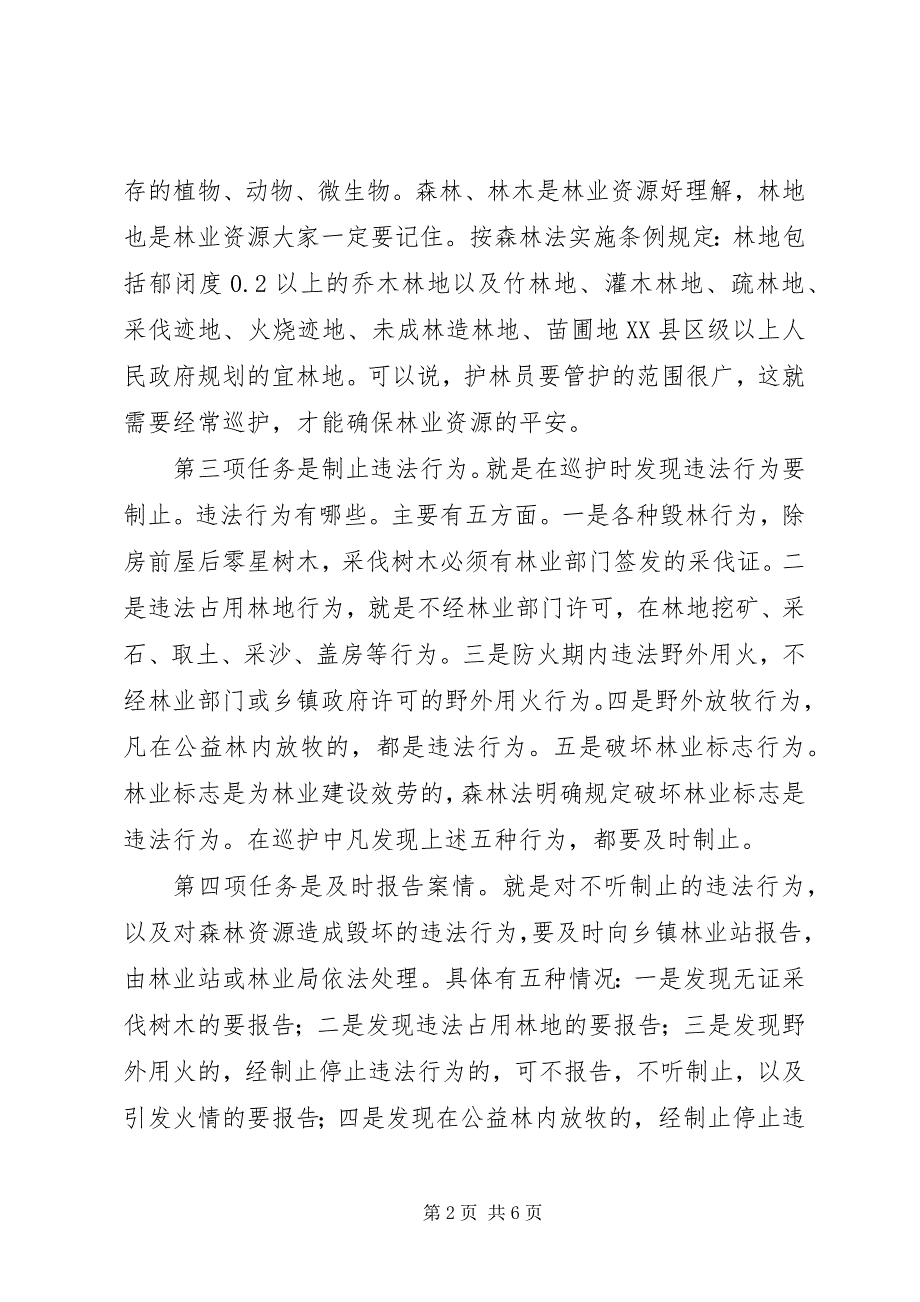 存的植物、动物、微生物。森林、林木是林业资源好理解，林地
也是林业资源大家一定要记住。按森林法实施条例规定：林地包
括郁闭度 0.2 以上的乔木林地以及竹林地、灌木林地、疏林地、
采伐迹地、火烧迹地、未成林造林地、苗圃地 XX 县区级以上人
民政府规划的宜林地。可以说，护林员要管护的范围很广，这就
需要经常巡护，才能确保林业资源的平安。
第三项任务是制止违法行为。就是在巡护时发现违法行为要
制止。违法行为有哪些。主要有五方面。一是各种毁林行为，除
房前屋后零星树木，采伐树木必须有林业部门签发的采伐证。二
是违法占用林地行为，就是不经林业部门许可，在林地挖矿、采
石、取土、采沙、盖房等行为。三是防火期内违法野外用火，不
经林业部门或乡镇政府许可的野外用火行为。四是野外放牧行为，
凡在公益林内放牧的，都是违法行为。五是破坏林业标志行为。
林业标志是为林业建设效劳的，森林法明确规定破坏林业标志是
违法行为。在巡护中凡发现上述五种行为，都要及时制止。
第四项任务是及时报告案情。就是对不听制止的违法行为，
以及对森林资源造成毁坏的违法行为，要及时向乡镇林业站报告，
由林业站或林业局依法处理。具体有五种情况：一是发现无证采
伐树木的要报告；二是发现违法占用林地的要报告；三是发现野
外用火的，经制止停止违法行为的，可不报告，不听制止，以及
引发火情的要报告；四是发现在公益林内放牧的，经制止停止违
第 2 页 共 6 页